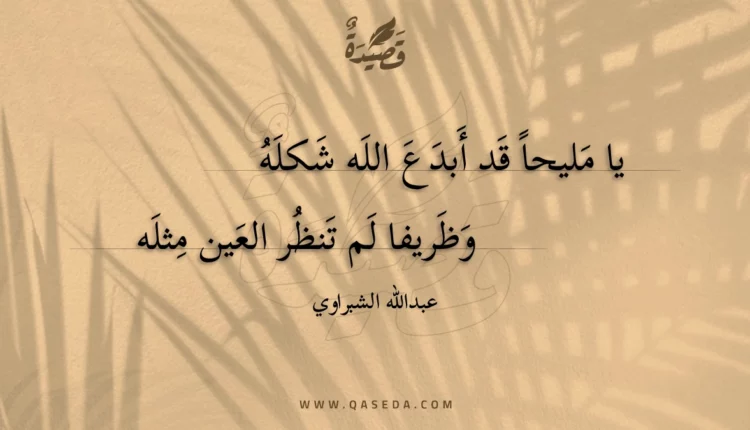 قَصِيْدَةٌ
يا مَليحاً قَد أَبدَعَ اللَه شَكلَهُ
وَظَريفا لَم تَنظُر العَين مِثلَه
عبدالله الشبراوي
WWW.QASEDA.COM